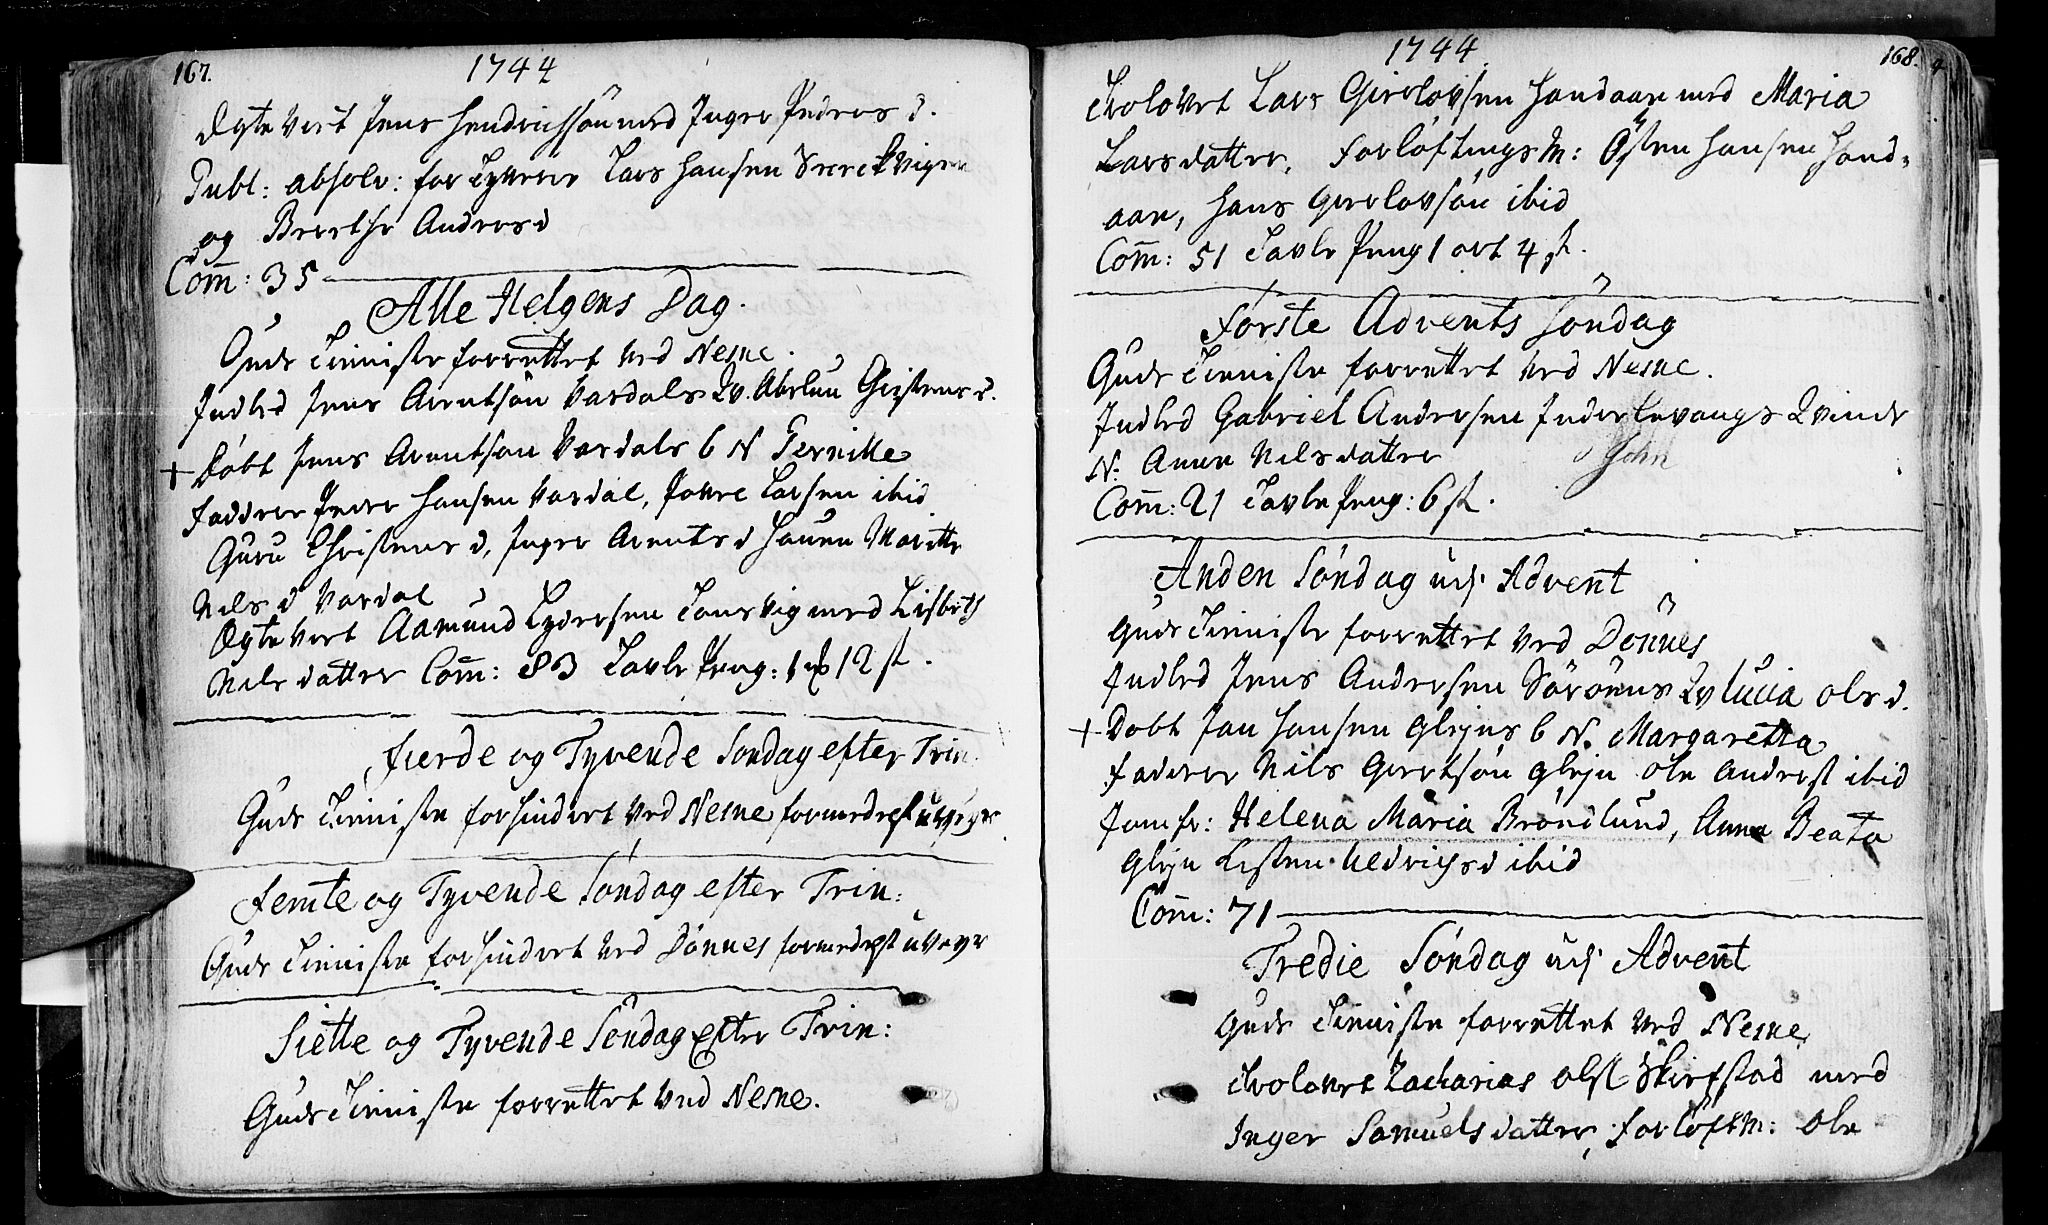 167.
1744
Ægteviet Jens Hendrichssøn med Inger Peders d.
Publ: absolv: for Leyermaal Lars Hansen
og Brerthe Anders d
Com̅: 35
Alle Helgens Dag.
Guds Tienniste forrettet ved Nesne.
Indled Jens Arentsøn Vardals Qv. Abelun Gistens d.
+ Døbt Jens Arentsøn Vardals b N Pernille
Faddrer Peder Hansen Vardal, Povel Larsen ibid
Guru Christens d, Inger Arents d Hauen Maritte
Nils d Vardal
Ægteviet Aamund Lydersen Tonsvig med Lisbeth
Nilsdatter Com̅: 83 Tavle Peng: 1 12 s.
Fierde og Tyvende Søndag efter Trin:
Guds Tienniste forhindret ved Nesne formedelst uveyr
Femte og Tyvende Søndag efter Trin:
Guds Tienniste forhindret ved Dønnes formedelst uveyr
Siette og Tyvende Søndag efter Trin:
Guds Tienniste forrettet ved Nesne.
168.
1744
Trolovet Lars Gierlovsen Handaan med Maria
Larsdatter, Forløftings M: Østen Hansen Hand-
aan, Hans Gierlovsøn ibid
Com̅: 51 Tavle Peng 1 ort 4 s.
Første Advents Søndag
Guds Tienniste forrettet ved Nesne.
Indled Gabriel Andersen Inderlevangs Qvinde
N. Anne Nilsdatter
John
Com̅: 21 Tavle Peng: 6 s.
Anden Søndag udj Advent
Guds Tienniste forrettet ved Dønnes
Indled Jens Andersen Sørøens Qv Lucia Ols d.
+ Døbt Jan Hansen Glejns b N. Margaretta
Fadrer Nils Geertsøn Glejn Ole Anders ibid
Jomfr: Helena Maria Brøndlund, Anna Beata
Glejn Listen Uldrichs d ibid
Com̅: 71
Tredie Søndag udj Advent
Guds Tienniste forrettet ved Nesne
Trolovet Zacharias Ols med
Inger Samuelsdatter, Forløft M: Ole